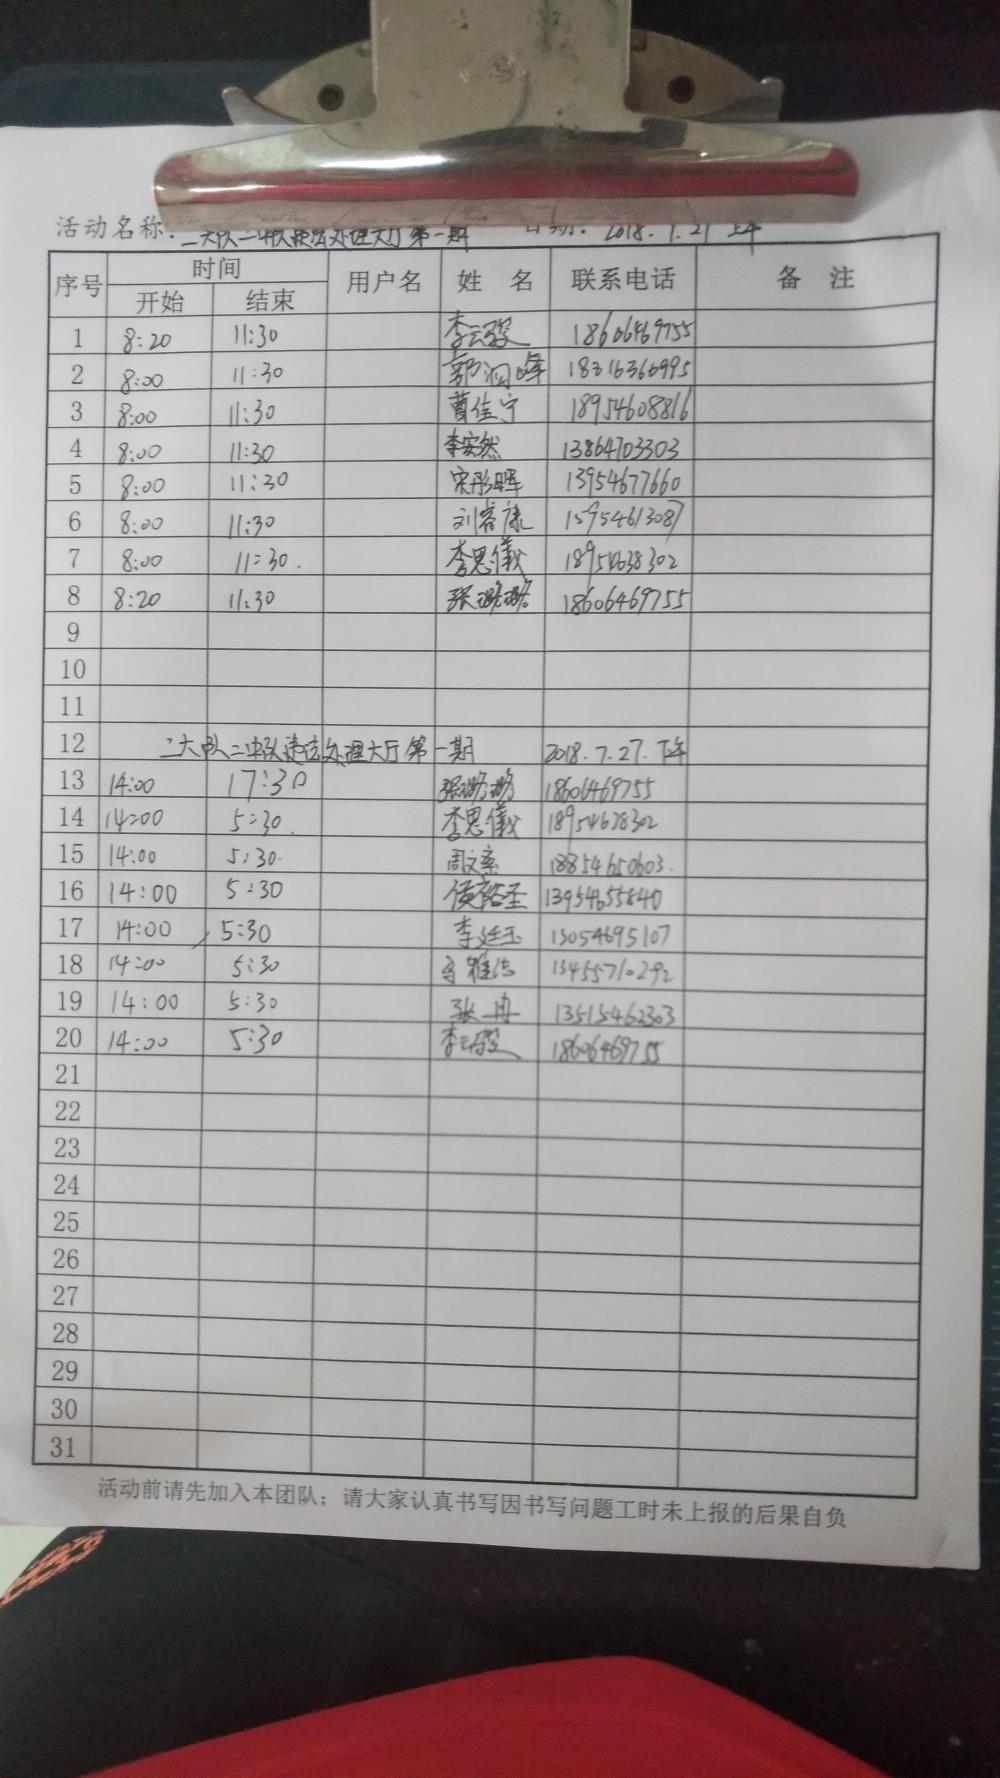 活动名称：二大队二中队违法处理大厅第一期 日期：2018.7.27 上午
序号 时间 用户名 姓 名 联系电话 备 注
开始 结束
1 8:20 11:30 18606469755
2 8:00 11:30 郭润峰 18316366995
3 8:00 11:30 曹佳宁 18954608816
4 8:00 11:30 李安然 13864703303
5 8:00 11:30 宋彤晖 13954677660
6 8:00 11:30 刘睿康 15954613087
7 8:00 11:30. 李思儀 18954638302
8 8:20 11:30 张璐璐 18606469755
9
10
11
12 二大队二中队违法处理大厅第一期 2018.7.27.下午
13 14:00 17:30 张璐璐 18606469755
14 14:00 5:30. 李思儀 18954638302
15 14:00 5:30. 18854650603.
16 14:00 5:30 13954655840
17 14:00 5:30 李廷玉 13054695107
18 14:00 5:30 13455710292
19 14:00 5:30 张冉 13515462303
20 14:00 5:30 18606469755
21
22
23
24
25
26
27
28
29
30
31
活动前请先加入本团队；请大家认真书写因书写问题工时未上报的后果自负